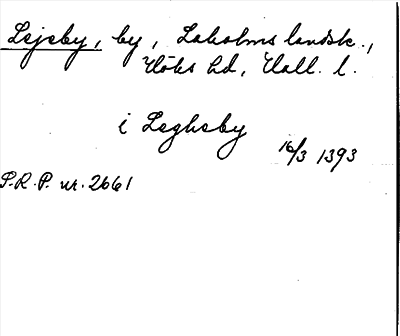 Lejeby, by, Laholms landsk.,
Höks hd, Hall. l.
i Legheby
16/3 1393
S.R.P. nr. 2661